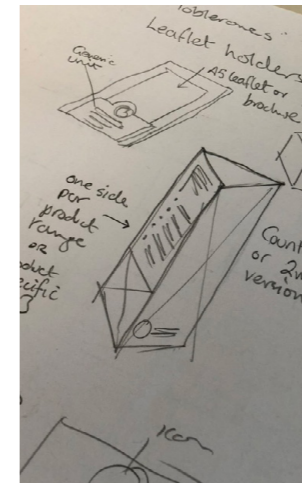 Toblerones"
Leaflet holders
Generic
unit
A5 leaflet or
brochure
one side
per
product
range
OR
oduct
ecific
Count
or 2m
version
Icon